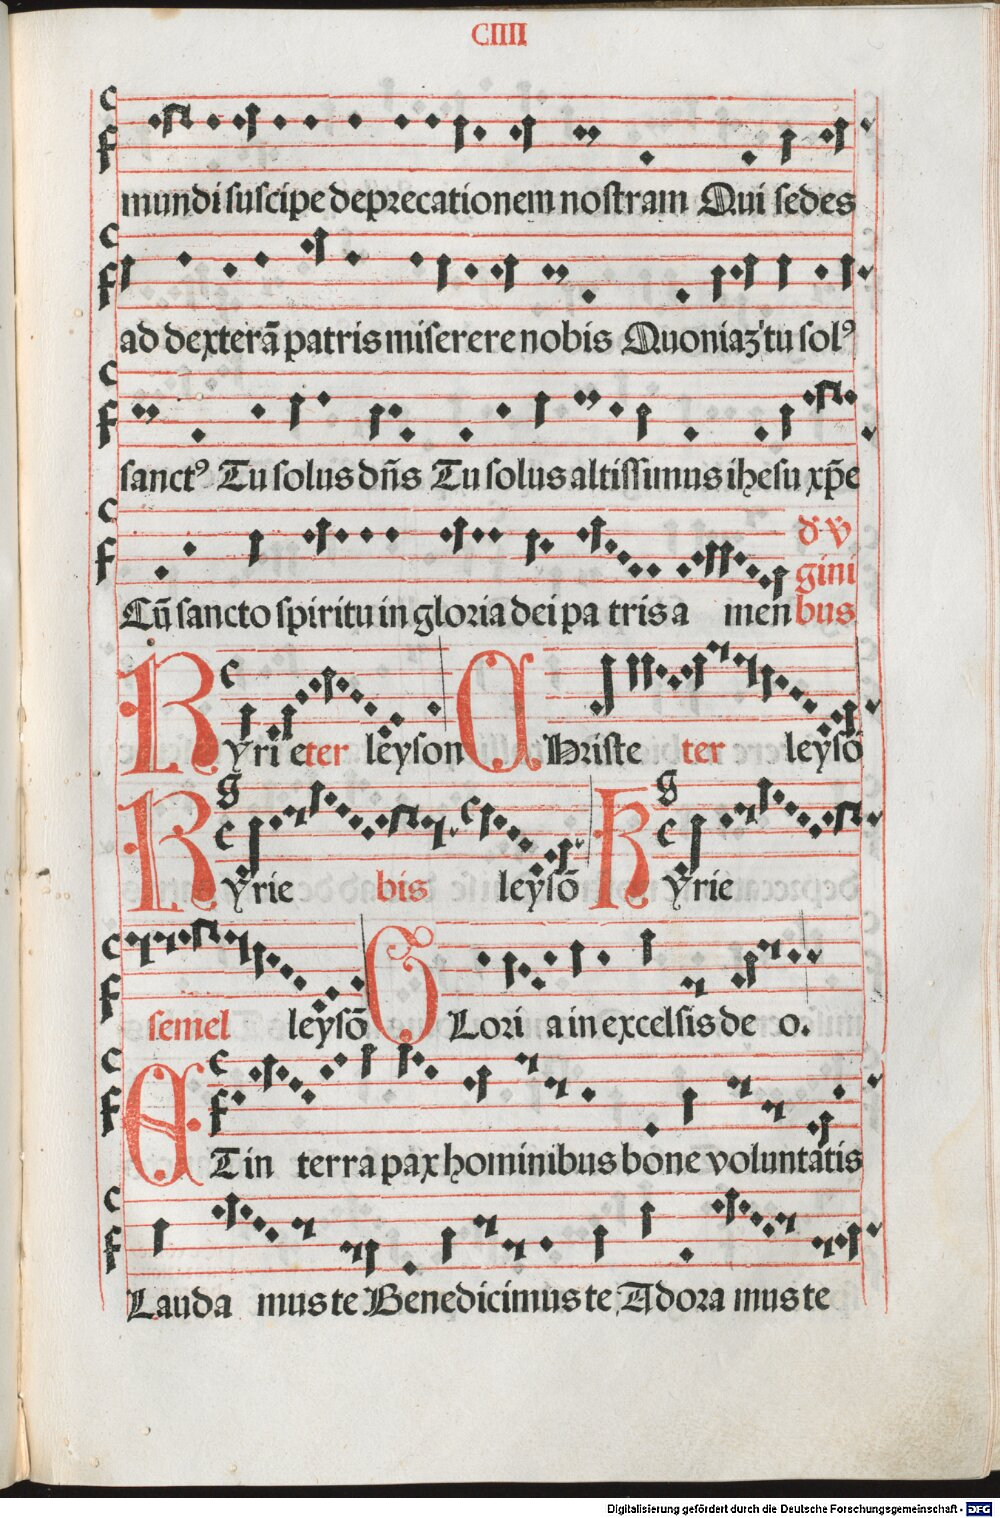 CIIII
mundi suscipe deprecationem nostram Qui sedes
ad dexterā patris miserere nobis Quoniaꝫ tu solꝰ
sanctꝰ Tu solus dn̄s Tu solus altissimus ihesu xp̄e
d' v̄
gini
Cū sancto spiritu in gloria dei pa tris a men bus
Kyri e ter leyson Christe ter leysō
Kyrie bis leysō Kyrie
semel leysō GLori a in excelsis de o.
ET in terra pax hominibus bone voluntatis
Lauda mus te Benedicimus te Adora mus te
Digitalisierung gefördert durch die Deutsche Forschungsgemeinschaft - DFG